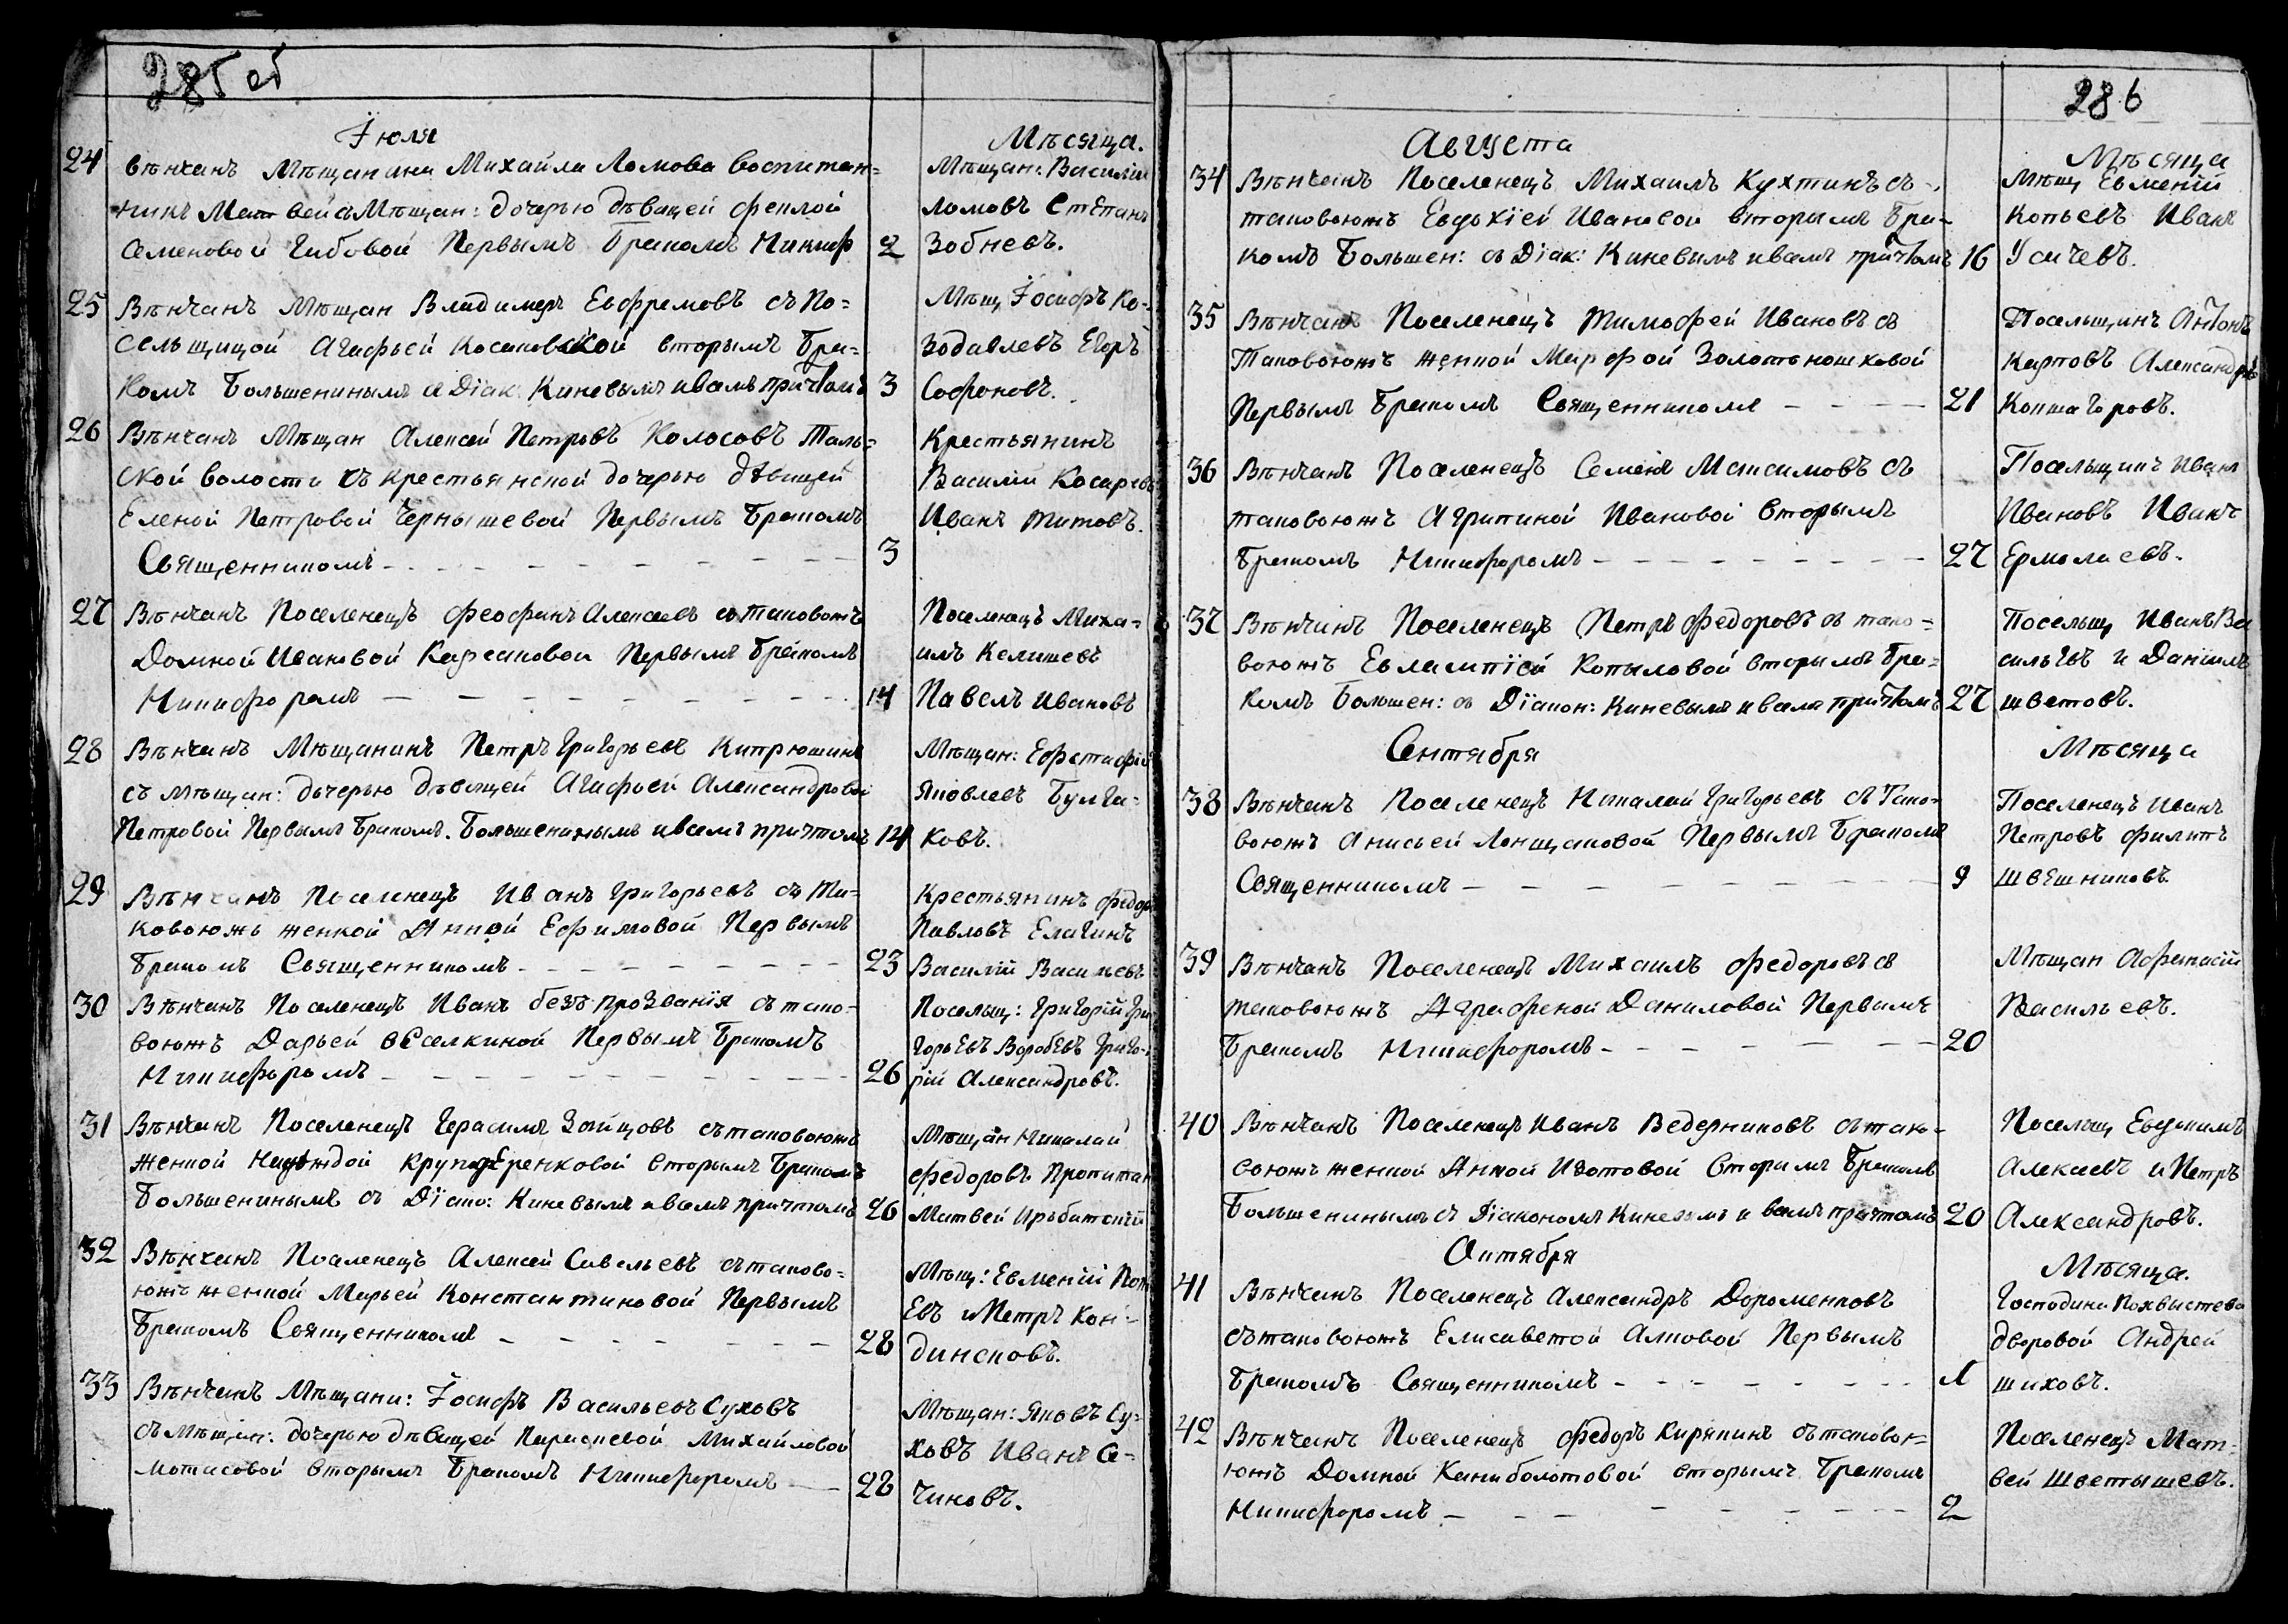 285 об
Июля
Мѣсяца.
24 вѣнчанъ Мѣщанина Михайла Ломова воспитан=
никъ Матвей съ Мѣщан: дочерью дѣвицей Феклой
Семеновой Гибовой Первымъ бракомъ Никиф 2
Мѣщан: Василій
Ломовъ Степанъ
Зобневъ.
25 Вѣнчанъ Мѣщан Владимеръ Евфремовъ съ По=
сельщицой Агафьей Косаковской вторымъ бра=
комъ Большенинымъ съ Діак: Киневымъ и всемъ причтомъ 3
Мѣщ Іосифъ Ко=
зодавлевъ Егоръ
Софоновъ.
26 Вѣнчанъ Мѣщан Алексей Петровъ Колосовъ Таль=
ской волости съ крестьянской дочерью дѣвицей
Еленой Петровой Чернышевой Первымъ бракомъ
Священникомъ 3
Крестьянинъ
Василій Косаревъ
Иванъ Титовъ.
27 Вѣнчанъ Поселенецъ Феофанъ Алексеевъ съ таковоюжъ
Домной Ивановой Первымъ бракомъ
Никифоромъ 14
Поселенецъ Миха=
илъ Келишевъ
Павелъ Ивановъ
28 Вѣнчанъ Мѣщанинъ Петръ Григорьевъ Кипрюшинъ
съ мѣщан: дочерью дѣвицей Агафьей Александровой
Петровой Первымъ бракомъ. Большенинымъ и всемъ причтомъ 14
Мѣщан: Ефстафій
Яковлевъ Булга=
ковъ.
29 Вѣнчанъ Поселенецъ Иванъ Григорьевъ съ та=
ковоюжъ женкой Анной Ефимовой Первымъ
бракомъ Священникомъ 23
Крестьянинъ Федоръ
Павловъ Елагинъ
Василій Васильевъ
30 Вѣнчанъ Поселенецъ Иванъ безъ прозванія съ тако=
воюжъ Дарьей Веселкиной Первымъ бракомъ
Никифоромъ 26
Посельщ: Григорій Гри
горьевъ Воробьевъ Григо=
рій Александровъ.
31 Вѣнчанъ Поселенецъ Герасимъ Зайцовъ съ таковоюжъ
женкой Надеждой вторымъ бракомъ
Большенинымъ съ Діако: Киневымъ и всемъ причтомъ 26
Мѣщан Николай
Федоровъ Пропитан
Матвей Ирбитскій
32 Вѣнчанъ Поселенецъ Алексей Савельевъ съ таково=
южъ женкой Марьей Константиновой Первымъ
бракомъ Священникомъ 28
Мѣщ: Евменій Коп
евъ и Петръ Кон=
динсковъ.
33 Вѣнчанъ Мѣщани: Іосифъ Васильевъ Суховъ
съ Мѣщан: дочерью дѣвицей Парасковой Михайловой
Мотасовой вторымъ бракомъ Никифоромъ 28
Мѣщан: Яковъ Су=
ховъ Иванъ Се=
чиновъ.
286
Августа
Мѣсяца
34 Вѣнчанъ Поселенецъ Михаилъ Кухтинъ съ
таковоюжъ Евдокіей Ивановой вторымъ бра=
комъ Большен: съ Діак: Киневымъ и всемъ причтомъ 16
Мѣщ Евменій
Копьевъ Иванъ
Усичевъ.
35 Вѣнчанъ Поселенецъ Тимофей Ивановъ съ
таковоюжъ женкой Марфой Золотоношковой
Первымъ бракомъ Священникомъ 21
Посельщикъ Антонъ
Карповъ Александръ
Коншагоровъ.
36 Вѣнчанъ Поселенецъ Семенъ Максимовъ съ
таковоюжъ Агрипиной Ивановой вторымъ
бракомъ Никифоромъ 27
Посельщикъ Иванъ
Ивановъ Иванъ
Ермолаевъ.
37 Вѣнчанъ Поселенецъ Петръ Федоровъ съ тако=
воюжъ Евлампіей Копыловой вторымъ бра=
комъ Большен: съ Діакон: Киневымъ и всемъ причтомъ 27
Посельщ Иванъ Ва
сильевъ и Данилъ
Шветовъ.
Сентября
Мѣсяца
38 Вѣнчанъ Поселенецъ Николай Григорьевъ съ тако=
воюжъ Анисьей Лонщаковой Первымъ бракомъ
Священникомъ 9
Поселенецъ Иванъ
Петровъ Филипъ
Швешниковъ.
39 Вѣнчанъ Поселенецъ Михаилъ Федоровъ съ
таковоюжъ Аграфеной Даниловой Первымъ
бракомъ Никифоромъ 20
Мѣщан Афанасій
Васильевъ.
40 Вѣнчанъ Поселенецъ Иванъ Ведерниковъ съ тако=
воюжъ женкой Анной Изотовой вторымъ бракомъ
Большенинымъ съ Діакономъ Киневымъ и всемъ причтомъ 20
Посельщ Евдокимъ
Алексеевъ и Петръ
Александровъ.
Октября
Мѣсяца.
41 Вѣнчанъ Поселенецъ Александръ Дороменковъ
съ таковоюжъ Елисаветой Алковой Первымъ
бракомъ Священникомъ 1
Господина Похвистева
дворовой Андрей
Шиховъ.
42 Вѣнчанъ Поселенецъ Федоръ Карякинъ съ таково=
южъ Домной Каниболотовой вторымъ бракомъ
Никифоромъ 2
Поселенецъ Мат=
вей Шветышевъ.